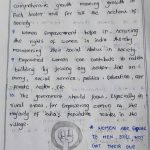 comprehensive growth meaning growth in
each sector and for all the sections of
society
Women Empowerment helps in Assuring
the rights of women in India thereby
maintaining their social status in
society.
Empowered women can contribute to nation
building by joining any sector like in
Army, social service, politics, Education, and
private sector, etc.
The government should focus, Especially on
rural areas, for Empowering women as the
majority of India's population resides in
the village
WOMEN ARE EQUAL
TO MEN STILL NOT
OUT THEIR OUR